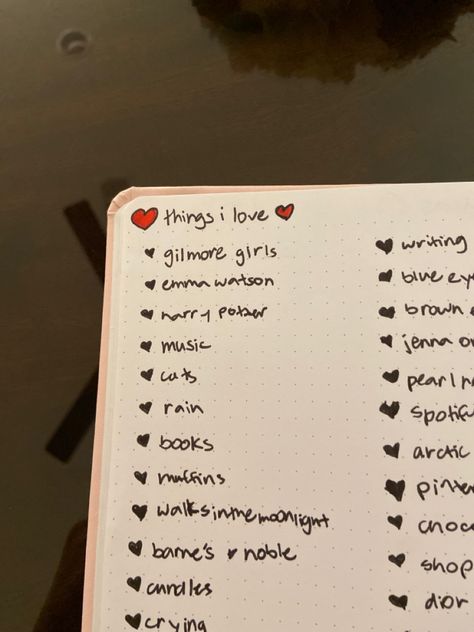 things i love
gilmore girls
emma watson
harry potter
music
cats
rain
books
muffins
walksinthemoonlight
barne's & noble
candles
crying
writing
blue ey
brown
jenna or
pearl n
spotify
arctic
pinter
choc
shop
dior